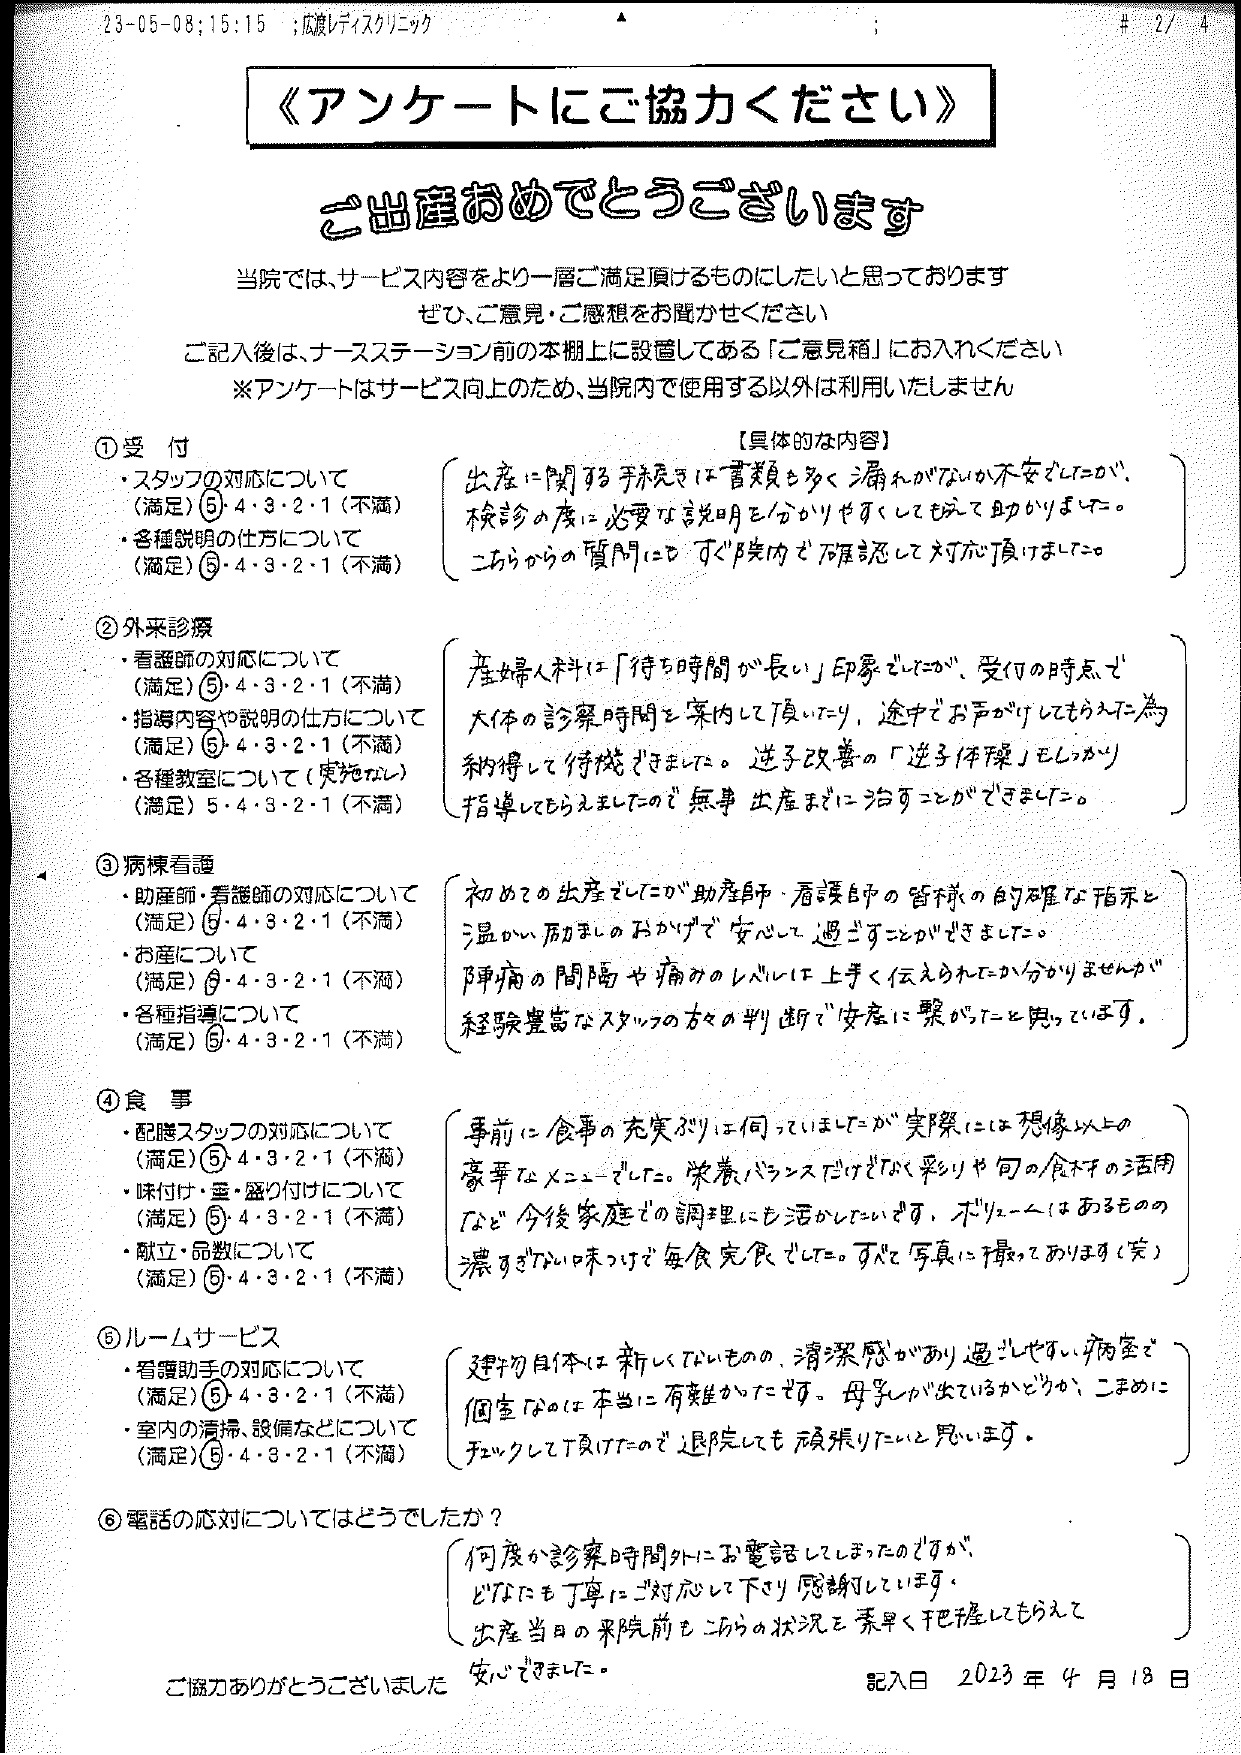 23-05-08;15:15 ;広渡レディスクリニック ; # 2/ 4
《アンケートにご協力ください》
ご出産おめでとうございます
当院では、サービス内容をより一層ご満足頂けるものにしたいと思っております
ぜひ、ご意見・ご感想をお聞かせください
ご記入後は、ナースステーション前の本棚上に設置してある「ご意見箱」にお入れください
※アンケートはサービス向上のため、当院内で使用する以外は利用いたしません
【具体的な内容】
①受 付
・スタッフの対応について
(満足) ⑤・4・3・2・1 (不満)
・各種説明の仕方について
(満足) ⑤・4・3・2・1 (不満)
出産に関する手続きは書類も多く漏れがないか不安でしたが、
検診の度に必要な説明を分かりやすくしてもらえて助かりました。
こちらからの質問にもすぐ院内で確認して対応頂けました。
②外来診療
・看護師の対応について
(満足) ⑤・4・3・2・1 (不満)
・指導内容や説明の仕方について
(満足) ⑤・4・3・2・1 (不満)
・各種教室について (実施なし)
(満足) 5・4・3・2・1 (不満)
産婦人科は「待ち時間が長い」印象でしたが、受付の時点で
大体の診察時間を案内して頂いたり、途中でお声がけしてもらえた為
納得して待機できました。逆子改善の「逆子体操」もしっかり
指導してもらえましたので無事出産までに治すことができました。
③病棟看護
・助産師・看護師の対応について
(満足) ⑤・4・3・2・1 (不満)
・お産について
(満足) ⑤・4・3・2・1 (不満)
・各種指導について
(満足) ⑤・4・3・2・1 (不満)
初めての出産でしたが助産師・看護師の皆様の的確な指示と
温かい励ましのおかげで安心して過ごすことができました。
陣痛の間隔や痛みのレベルは上手く伝えられたか分かりませんが
経験豊富なスタッフの方々の判断で安産に繋がったと思っています。
④食 事
・配膳スタッフの対応について
(満足) ⑤・4・3・2・1 (不満)
・味付け・量・盛り付けについて
(満足) ⑤・4・3・2・1 (不満)
・献立・品数について
(満足) ⑤・4・3・2・1 (不満)
事前に食事の充実ぶりは伺っていましたが実際には想像以上の
豪華なメニューでした。栄養バランスだけでなく彩りや旬の食材の活用
など今後家庭での調理にも活かしたいです。ボリュームはあるものの
濃すぎない味つけで毎食完食でした。すべて写真に撮ってあります(笑)
⑤ルームサービス
・看護助手の対応について
(満足) ⑤・4・3・2・1 (不満)
・室内の清掃、設備などについて
(満足) ⑤・4・3・2・1 (不満)
建物自体は新しくないものの、清潔感があり過ごしやすい病室で
個室なのは本当に有難かったです。母乳が出ているかどうか、こまめに
チェックして頂けたので退院しても頑張りたいと思います。
⑥電話の応対についてはどうでしたか？
何度か診察時間外にお電話してしまったのですが、
どなたも丁寧にご対応して下さり感謝しています。
出産当日の来院前もこちらの状況を素早く把握してもらえて
安心できました。
ご協力ありがとうございました
記入日 2023 年 4 月 18 日